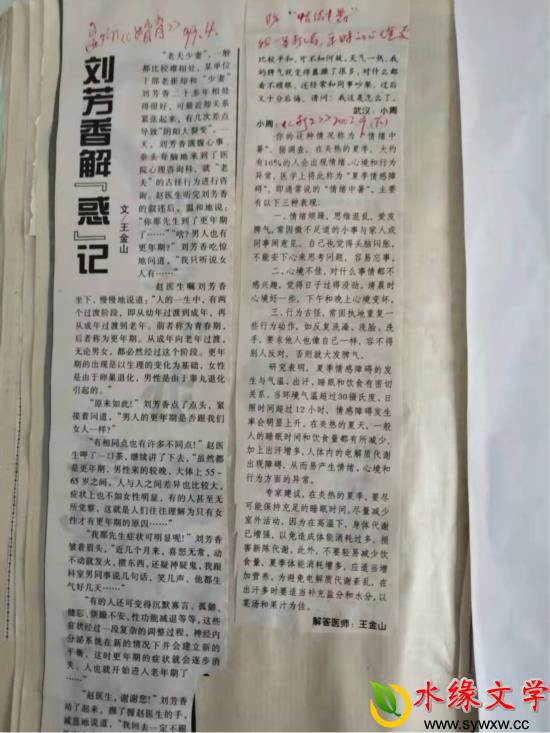 刘芳香解『惑』记
文/王金山
“老夫少妻”,一般
都比较难相处,某单位
干部老崔却和“少妻”
刘芳香二十多年相处
得很好,可最近却关系
紧张起来,有几次差点
导致“阴阳大裂变”。一
天,刘芳香满腹心事、
垂头丧脑地来到了医
院心理咨询科,就“老
夫”的古怪行为进行咨
询。赵医生听完刘芳香
的叙述后,温和地说:
“你那先生到了更年期
了……”“啥?男人也有
更年期?”刘芳香吃惊
地问道。“我只听说女
人有……”
赵医生嘱刘芳香
坐下,慢慢地说道:“人的一生中,有两
个过渡阶段,即从幼年过渡到成年,再
从成年过渡到老年。前者称为青春期,
后者称为更年期。从成年向老年过渡,
无论男女,都必然经过这个阶段。更年
期的出现是以生理的变化为基础,女性
是由于卵巢退化,男性是由于睾丸退化
引起的。”
“原来如此!”刘芳香点了点头,紧
接着问道,“男人的更年期是否跟我们
女人一样?”
“有相同点也有许多不同点!”赵医
生呷了一口茶,继续讲了下去,“虽然都
是更年期,男性来的较晚,大体上55-
65岁之间。人与人之间差异也比较大,
症状上也不如女性明显,有的人甚至无
所觉察,这就是人们往往理解为只有女
性才有更年期的原因……”
“我那先生症状可明显呢!”刘芳香
皱着眉头,“近几个月来,喜怒无常,动
不动就发火,摔东西,还疑神疑鬼,我跟
科室男同事说几句话,笑几声,他都生
气好几天……”
“有的人还可变得沉默寡言、孤僻、
健忘、烦躁不安、性功能减退等等,这些
症状经过一段复杂的调整过程,神经内
分泌系统在新的情况下并会建立新的
平衡,这时更年期的症状就会逐步消
失,人也就开始进入老年期了……”
“赵医生,谢谢您!”刘芳香
站了起来,握了握赵医生的手,
诚恳地说道,“我回去一定不跟
比较平和,可不知何故,天气一热,我
的脾气就变得暴躁了很多,对什么都
看不顺眼,还经常和同事吵架,过后
又十分后悔。请问:我这是怎么了。
武汉:小周
小周:
你的这种情况称为“情绪中
暑”。据调查,在炎热的夏季,大约
有16%的人会出现情绪、心境和行为
异常。医学上将此称为“夏季情感障
碍”,即通常说的“情绪中暑”。主要
有以下三种表现:
一、情绪烦躁、思维混乱、爱发
脾气,常因微不足道的小事与家人或
同事闹意见。自己也觉得头脑闷胀,
不能安下心来思考问题,容易忘事。
二、心境不佳,对什么事情都不
感兴趣,觉得日子过得没劲。清晨时
心境好一些,下午和晚上心境变坏。
三、行为古怪,常固执地重复一
些行为动作,如反复洗澡、洗脸、洗
手,要求他人也像自己一样,容不得
别人反对,否则就大发脾气。
研究表明,夏季情感障碍的发生
与气温、出汗、睡眠和饮食有密切
关系。当环境气温超过30摄氏度,日
照时间超过12小时,情感障碍发生
率会明显上升。在炎热的夏天,一般
人的睡眠时间和饮食量都有所减少,
加上出汗增多,人体内的电解质代谢
出现障碍,从而易产生情绪、心境和
行为方面的异常。
专家建议,在炎热的夏季,要尽
可能保持充足的睡眠时间。尽量减少
室外活动。因为在高温下,身体代谢
已增强,以免造成体能消耗过多,损
害新陈代谢。此外,不要轻易减少饮
食量。夏季体能消耗增多,应适当增
加营养。为避免电解质代谢紊乱,在
出汗多时要适当补充盐分和水分,以
菜汤和果汁为佳。
解答医师:王金山
水缘文学
www.sywxw.cc